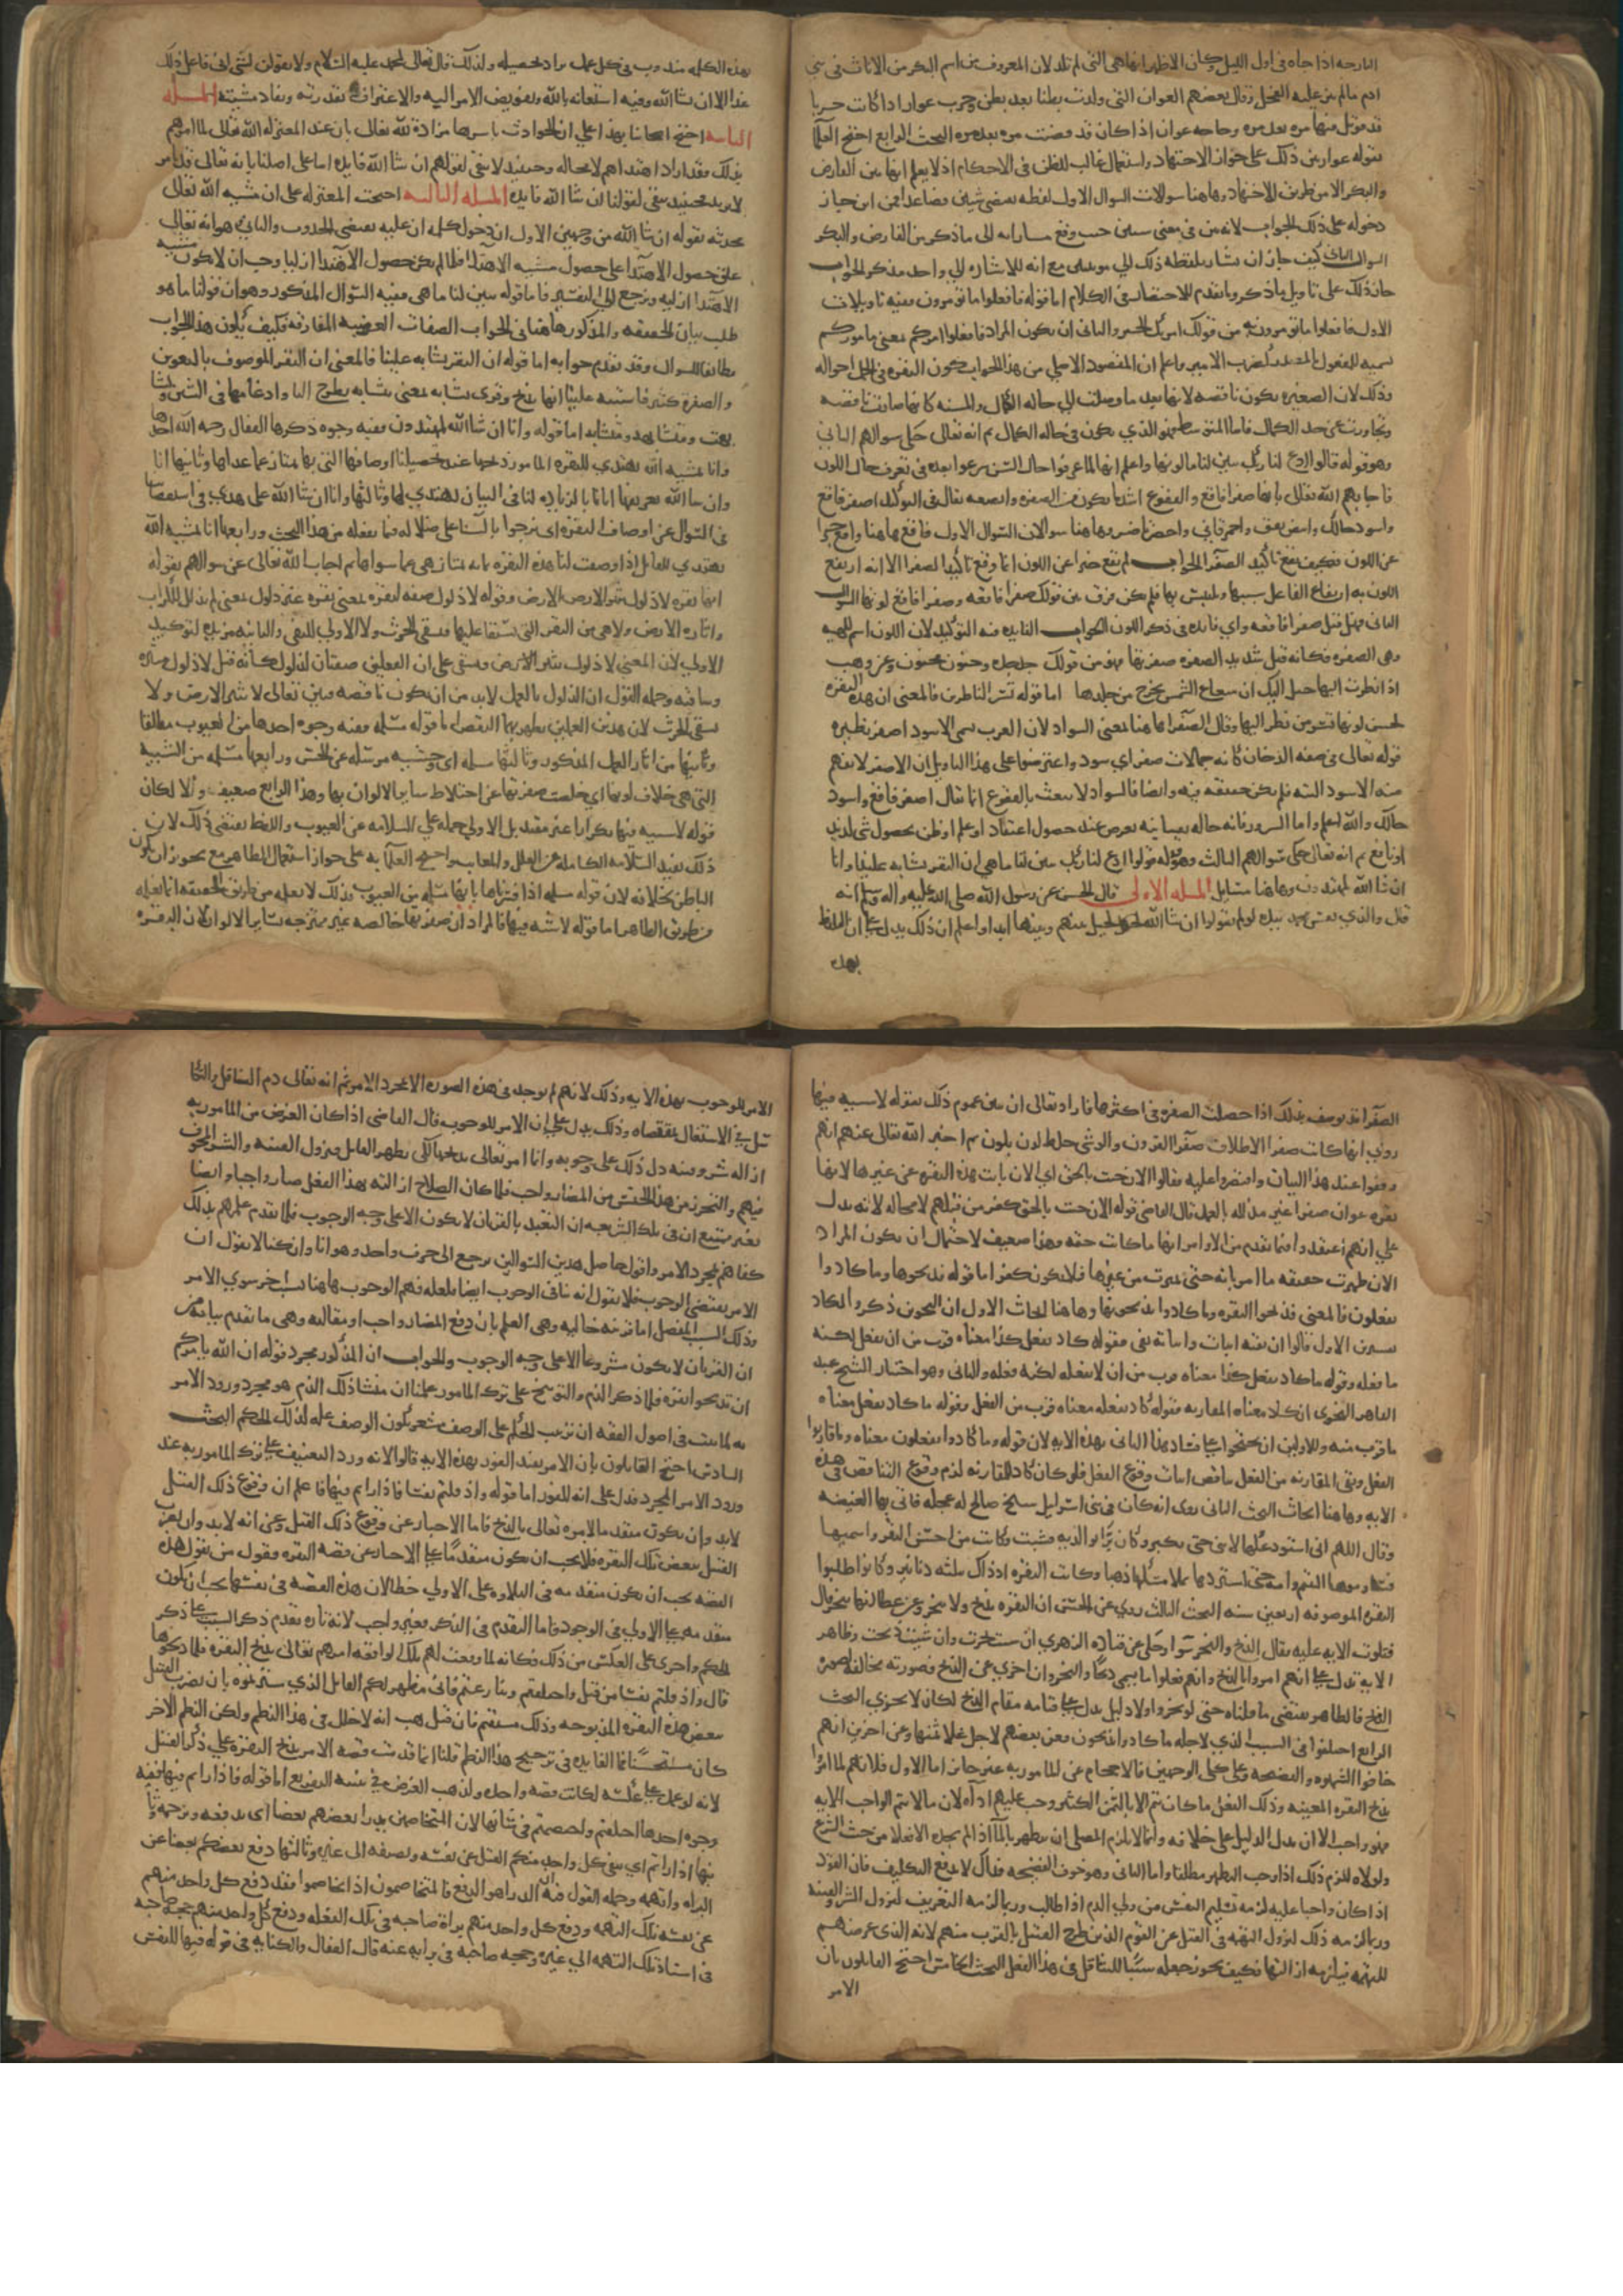 البارحه اذا جاه في اول الليل وكان الاظهر انها هي التي لم تلد لان المعروف من اسم البكر من الاناث في بني
ادم مالم ينز عليه الفحل وقال بعضهم العوان التي ولدت بطنا بعد بطن وحرب عوان اذا كانت حربا
قد قوتل فيها مره بعد مره وحاجه عوان اذا كان قد قضيت مره بعد مره البحث الرابع احتج العلما
بقوله عوان بين ذلك على جواز الاجتهاد واستعمال غالب الظن في الاحكام اذ لا يعلم انها بين الفارض
والبكر الا من طريق الاجتهاد وهاهنا سوالات السوال الاول لفظه بين تقتضي شيئين فصاعدا فمن اين جاز
دخوله على ذلك الجواب لانه في معنى شيئين حيث وقع مشارا به الى ما ذكر من الفارض والبكر
السوال الثاني كيف جاز ان يشار بلفظه ذلك الي مونثين مع انه للاشاره الي واحد مذكر الجواب
جاز ذلك على تاويل ما ذكر وما تقدم للاختصار في الكلام اما قوله فافعلوا ما تومرون ففيه تاويلات
الاول فافعلوا ما تومرون به من قولك امرتك الخير والثاني ان يكون المراد فافعلوا امركم بمعنى ماموركم
تسميه للمفعول بالمصدر كضرب الامير واعلم ان المقصود الاصلي من هذا الجواب كون البقره في اكمل احوالها
وذلك لان الصغيره تكون ناقصه لانها بعد ما وصلت الي حاله الكمال والمسنه كانها صارت ناقصه
وتجاوزت عن حد الكمال فاما المتوسطه فهي التي تكون في حاله الكمال ثم انه تعالى حكى سوالهم الثاني
وهو قوله قالوا ادع لنا ربك يبين لنا ما لونها واعلم انهم لما عرفوا حال السن شرعوا بعده في تعرف حال اللون
فاجابهم الله تعالى بانها صفرا فاقع والفقوع اشد ما يكون من الصفره وانصعه يقال في التوكيد اصفر فاقع
واسود حالك وابيض يقق واحمر قاني واخضر ناضر وهاهنا سوالان السوال الاول فاقع هاهنا واقع خبرا
عن اللون فكيف يقع تاكيدا لصفرا الجواب لم يقع خبرا عن اللون انما وقع تاكيدا لصفرا الا انه ارتفع
اللون به ارتفاع الفاعل بسببها وملتبس بها فلم يكن فرق بين قولك صفرا فاقعه وصفرا فاقع لونها السوال
الثاني فهل قيل صفرا فاقعه واي فايده في ذكر اللون الجواب الفايده فيه التوكيد لان اللون اسم للهيه
وهي الصفره فكانه قيل شديد الصفره صفرتها فهو من قولك جد جده وجنون مجنون وعن وهب
اذا نظرت اليها خيل اليك ان شعاع الشمس يخرج من جلدها اما قوله تسر الناظرين فالمعنى ان هذه البقره
لحسن لونها تسر من نظر اليها وقال الصفرا هاهنا بمعنى السواد لان العرب تسمي الاسود اصفر نظيره
قوله تعالى في صفه الدخان كانه جمالات صفر اي سود واعترضوا على هذا التاويل بان الاصفر لا يفهم
منه الاسود البته فلم يكن حقيقه فيه وايضا فالسواد لا ينعت بالفقوع انما يقال اصفر فاقع واسود
حالك والله اعلم واما السرور فانه حاله نفسانيه تعرض عند حصول اعتقاد او علم او ظن بحصول شي لذيذ
او نافع ثم انه تعالى حكى سوالهم الثالث وهو قوله قالوا ادع لنا ربك يبين لنا ما هي ان البقر تشابه علينا وانا
ان شا الله لمهتدون وهاهنا مسايل المسله الاولى قال الحسن عن رسول الله صلى الله عليه واله وسلم انه
قال والذي نفس محمد بيده لو لم يقولوا ان شا الله لحيل بينهم وبينها ابدا واعلم ان ذلك يدل على ان التلفظ
بهذه
بهذه الكلمه مندوب في كل عمل يراد تحصيله ولذلك قال تعالى لمحمد عليه السلام ولا تقولن لشي اني فاعل ذلك
غدا الا ان شا الله وفيه استعانه بالله وتفويض الامر اليه والاعتراف بقدرته ونفاذ مشيته المسله
الثانيه احتج اصحابنا بهذا على ان الحوادث باسرها مراده لله تعالى فان عند المعتزله الله تعالى لما امرهم
بذلك فقد اراد اهتداهم لا محاله وحينيذ لا يبقى لقولهم ان شا الله فايده اما على اصلنا فانه تعالى قد يامر بما
لا يريد فحينيذ يبقى لقولنا ان شا الله فايده المسله الثالثه احتجت المعتزله على ان مشيه الله تعالى
محدثه بقوله ان شا الله من وجهين الاول ان دخول كلمه ان عليه يقتضي الحدوث والثاني هو انه تعالى
علق حصول الاهتدا على حصول مشيه الاهتدا فلما لم يكن حصول الاهتدا ازليا وجب ان لا تكون مشيه
الاهتدا ازليه ونرجع الى التفسير فاما قوله يبين لنا ما هي ففيه السوال المذكور وهو ان قولنا ما هو
طلب بيان الحقيقه والمذكور هاهنا في الجواب الصفات العرضيه المفارقه فكيف يكون هذا الجواب
مطابقا للسوال وقد تقدم جوابه اما قوله ان البقر تشابه علينا فالمعنى ان البقر الموصوف بالتعوين
والصفره كثير فاشتبه علينا ايها يذبح وقرى تشابه بمعنى تتشابه بطرح التا وادغامها في الشين وتشا
بهت ومتشابهه ومتشابه اما قوله وانا ان شا الله لمهتدون ففيه وجوه ذكرها القفال رحمه الله احدها
وانا بمشيه الله نهتدي للبقره المامور بذبحها عند تحصيلنا اوصافها التي بها تمتاز عما عداها وثانيها انا
وان شا الله تعريفها ايانا بالزياده لنا في البيان نهتدي لها وثالثها وانا ان شا الله على هدي في استقصاينا
في السوال عن اوصاف البقره اي نرجوا انا لسنا على ضلاله فيما نفعله من هذا البحث ورابعها انا بمشيه الله
نهتدي للقاتل اذا وصفت لنا هذه البقره بما به تمتاز هي عما سواها ثم اجاب الله تعالى عن سوالهم بقوله
انها بقره لا ذلول تثير الارض وقوله لا ذلول صفه لبقره بمعنى بقره غير ذلول بمعنى لم تذلل للكراب
واثاره الارض ولا هي من البقر التي يستقا عليها فتسقي الحرث ولا الاولي للنفي والثانيه مزيده لتوكيد
الاولي لان المعنى لا ذلول تثير الارض وتسقي على ان الفعلين صفتان لذلول كانه قيل لا ذلول مثيره
وساقيه وجمله القول ان الذلول بالعمل لابد من ان يكون ناقصه فبين تعالى انها لا تثير الارض ولا
تسقي الحرث لان هذين العملين يظهر بهما النقص اما قوله مسلمه ففيه وجوه احدها من العيوب مطلقا
وثانيها من اثار العمل المذكور وثالثها مسلمه اي وحشيه مرسله عن الحبس ورابعها مسلمه من الشيه
التي هي خلاف لونها اي خلصت صفرتها عن اختلاط ساير الالوان بها وهذا الرابع ضعيف والا لكان
قوله لا شيه فيها تكرارا غير مفيد بل الاولى حمله على السلامه عن العيوب واللفظ يقتضي ذلك لان
ذلك يفيد السلامه الكامله عن العلل والمعايب واحتج العلما به على جواز استعمال الظاهر مع تجويز ان يكون
الباطن بخلافه لان قوله مسلمه اذا فسرناها بانها مسلمه من العيوب فذلك لا نعلمه من طريق الحقيقه انما نعلمه
من طريق الظاهر اما قوله لا شيه فيها فالمراد ان صفرتها خالصه غير ممتزجه بساير الالوان لان البقره
الصفرا قد توصف بذلك اذا حصلت الصفره في اكثرها فاراد تعالى ان يبين عموم ذلك بقوله لا شيه فيها
روي انها كانت صفرا الاظلاف صفرا القرون والوشي خلط لون بلون ثم اخبر الله تعالى عنهم انهم
وقفوا عند هذا البيان واقتصروا عليه فقالوا الان جيت بالحق اي الان بانت هذه البقره عن غيرها لانها
بقره عوان صفرا غير مذلله بالعمل قال القاضي قوله الان جيت بالحق كفر من قبلهم لا محاله لانه يدل
على انهم اعتقدوا فيما تقدم من الاوامر انها ما كانت حقه وهذا ضعيف لاحتمال ان يكون المراد
الان ظهرت حقيقه ما امرنا به حتى تميزت من غيرها فلا يكون كفرا اما قوله فذبحوها وما كادوا
يفعلون فالمعنى فذبحوا البقره وما كادوا يذبحونها وهاهنا ابحاث الاول ان النحويين ذكروا لكاد
تفسيرين الاول قالوا ان نفيه اثبات واثباته نفي فقوله كاد يفعل كذا معناه قرب من ان يفعل لكنه
ما فعله وقوله ما كاد يفعل كذا معناه قرب من ان لا يفعله لكنه فعله والثاني وهو اختيار الشيخ عبد
القاهر النحوي ان كاد معناه المقاربه فقوله كاد يفعله معناه قرب من الفعل وقوله ما كاد يفعل معناه
ما قرب منه وللاولين ان يحتجوا على فساد هذا الثاني بهذه الايه لان قوله وما كادوا يفعلون معناه وما قاربوا
الفعل ونفي المقاربه من الفعل يناقض اثبات وقوع الفعل فلو كان كاد للمقاربه لزم وقوع التناقض في هذه
الايه وهاهنا ابحاث البحث الثاني روى انه كان في بني اسرايل شيخ صالح له عجله فاتى بها الغيضه
وقال اللهم اني استودعتكها لابني حتى يكبر وكان برا بوالديه فشبت وكانت من احسن البقر واسمنها
فتساوموها اليتيم وامه حتى اشتروها بملا مسكها ذهبا وكانت البقره اذ ذاك بثلثه دنانير وكانوا طلبوا
البقره الموصوفه اربعين سنه البحث الثالث روي عن الحسن ان البقره تذبح ولا تنحر وعن عطا انها تنحر قال
فتلوت الايه عليه فقال الذبح والنحر سوا وحكي عن قتاده والزهري ان شيت نحرت وان شيت ذبحت وظاهر
الايه يدل على انهم امروا بالذبح وانهم فعلوا ما يسمى ذبحا والنحر وان اجزى عن الذبح فصورته مخالفه لصوره
الذبح فالظاهر يقتضي ما قلناه حتى لو نحروا ولا دليل يدل على قيامه مقام الذبح لكان لا يجزي البحث
الرابع اختلفوا في السبب الذي لاجله ما كادوا يذبحون فعن بعضهم لاجل غلا ثمنها وعن اخرين انهم
خافوا الشهره والفضيحه وعلى كلى الوجهين فالاحجام عن المامور به غير جايز اما الاول فلانهم لما امروا
بذبح البقره المعينه وذلك الفعل ما كان يتم الا بالثمن الكثير وجب عليهم اداه لان مالا يتم الواجب الا به
فهو واجب الا ان يدل الدليل على خلافه وانما لا يلزم المصلي ان يتطهر بالما اذا لم يجده الا بغلا من حيث الشرع
ولولاه للزم ذلك اذا وجب التطهر مطلقا واما الثاني وهو خوف الفضيحه فذاك لا يدفع التكليف فان القود
اذا كان واجبا عليه لزمه تسليم النفس من ولي الدم اذا طالب وربما لزمه التعريف ليزول الشر والفتنه
وربما لزمه ذلك لتزول التهمه في القتل عن القوم الذين طرح القتيل بالقرب منهم لانه الذي عرضهم
للتهمه فيلزمه ازالتها فكيف يجوز جعله سببا للتثاقل في هذا الفعل البحث الخامس احتج القايلون بان
الامر
الامر للوجوب بهذه الايه وذلك لانهم لم يوجد في هذه الصوره الا مجرد الامر ثم انه تعالى ذم التثاقل والتكا
سل في الاشتغال بمقتضاه وذلك يدل على ان الامر للوجوب قال القاضي اذا كان الغرض من المامور به
ازاله شر وفتنه دل ذلك على وجوبه وانما امر تعالى بذبحها لكي يظهر القاتل فتزول الفتنه والشر المخوف
فيهم والتحرز من هذا الجنس من المضار واجب فلما كان الصلاح ازالته بهذا الفعل صار واجبا وايضا
فغير ممتنع ان في تلك الشريعه ان التعبد بالقربان لا يكون الا على وجه الوجوب فلما تقدم علمهم بذلك
كفاهم مجرد الامر واقول حاصل هذين السوالين يرجع الى حرف واحد وهو انا وان كنا لا نقول ان
الامر يقتضي الوجوب فلا نقول انه ينافي الوجوب ايضا فلعله فهم الوجوب هاهنا بسبب اخر سوي الامر
وذلك السبب المفصل اما قرينه حاليه وهي العلم بان دفع المضار واجب او مقاليه وهي ما تقدم بيانه من
ان القربان لا يكون مشروعا الا على وجه الوجوب والجواب ان المذكور مجرد قوله ان الله يامركم
ان تذبحوا بقره فلما ذكر الذم والتوبيخ على ترك المامور علمنا ان منشا ذلك الذم هو مجرد ورود الامر
به لما ثبت في اصول الفقه ان ترتيب الحكم على الوصف مشعر بكون الوصف عله لذلك الحكم البحث
السادس احتج القايلون بان الامر يفيد الفور بهذه الايه قالوا لانه ورد التعنيف على ترك المامور به عند
ورود الامر المجرد فدل على انه للفور اما قوله واذ قتلتم نفسا فاذاراتم فيها فاعلم ان وقوع ذلك القتل
لابد وان يكون متقدما لامره تعالى بالذبح فاما الاخبار عن وقوع ذلك القتل وعن انه لابد وان يضرب
القتيل ببعض تلك البقره فلا يجب ان يكون متقدما على الاخبار عن قصه البقره فقول من يقول هذه
القصه يجب ان يكون متقدمه في التلاوه على الاولي خطا لان هذه القصه في نفسها يجب ان تكون
متقدمه على الاولى في الوجود فاما التقدم في الذكر فغير واجب لانه تاره يتقدم ذكر السبب على ذكر
الحكم واخرى على العكس من ذلك فكانه لما وقعت لهم تلك الواقعه امرهم تعالى بذبح البقره فلما ذبحوها
قال واذ قتلتم نفسا من قبل واختلفتم وتنازعتم فاني مظهر لكم القاتل الذي سترتموه بان يضرب القتيل
ببعض هذه البقره المذبوحه وذلك مستقيم فان قيل هب انه لا خلل في هذا النظم ولكن النظم الاخر
كان مستحسنا فما الفايده في ترجيح هذا النظم قلنا انما قدمت قصه الامر بذبح البقره على ذكر القتيل
لانه لو عمل على عكسه لكانت قصه واحده ولذهب الغرض في تثنيه التقريع اما قوله فاذاراتم فيها ففيه
وجوه احدها اختلفتم واختصمتم في شانها لان المتخاصمين يدرا بعضهم بعضا اي يدفعه ويزحمه وثا
نيها اذاراتم اي ينفي كل واحد منكم القتل عن نفسه ويضيفه الى غيره وثالثها دفع بعضكم بعضا عن
البراه والتهمه وجمله القول فيه ان الدراهو الدفع فالمتخاصمون اذا تخاصموا فقد دفع كل واحد منهم
عن نفسه تلك التهمه ودفع كل واحد منهم براه صاحبه في تلك الفعله ودفع كل واحد منهم حجه صاحبه
في اسناد تلك التهمه الي غيره وحجه صاحبه في برايه عنه قال القفال والكنايه في قوله فيها للنفس